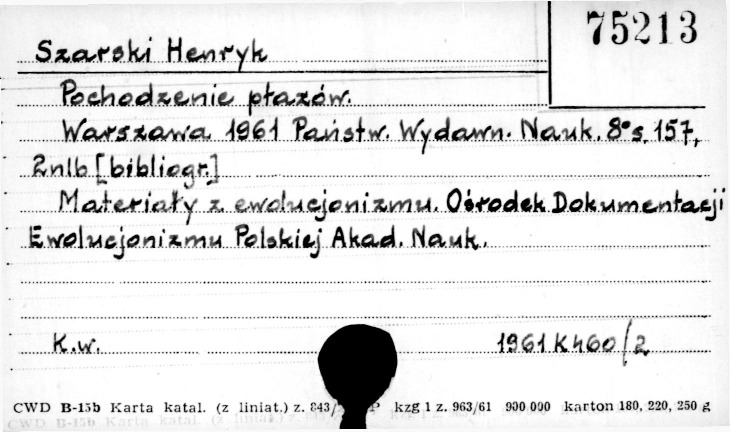 75213
Szarski Henryk
Pochodzenie płazów.
Warszawa 1961 Państw. Wydawn. Nauk. 8° s. 157,
2nlb [bibliogr.]
Materiały z ewolucjonizmu. Ośrodek Dokumentacji
Ewolucjonizmu Polskiej Akad. Nauk.
K.w. 1961 K 460/2
CWD B-15b Karta katal. (z liniat.) z. 843/ P kzg 1 z. 963/61 900 000 karton 180, 220, 250 g